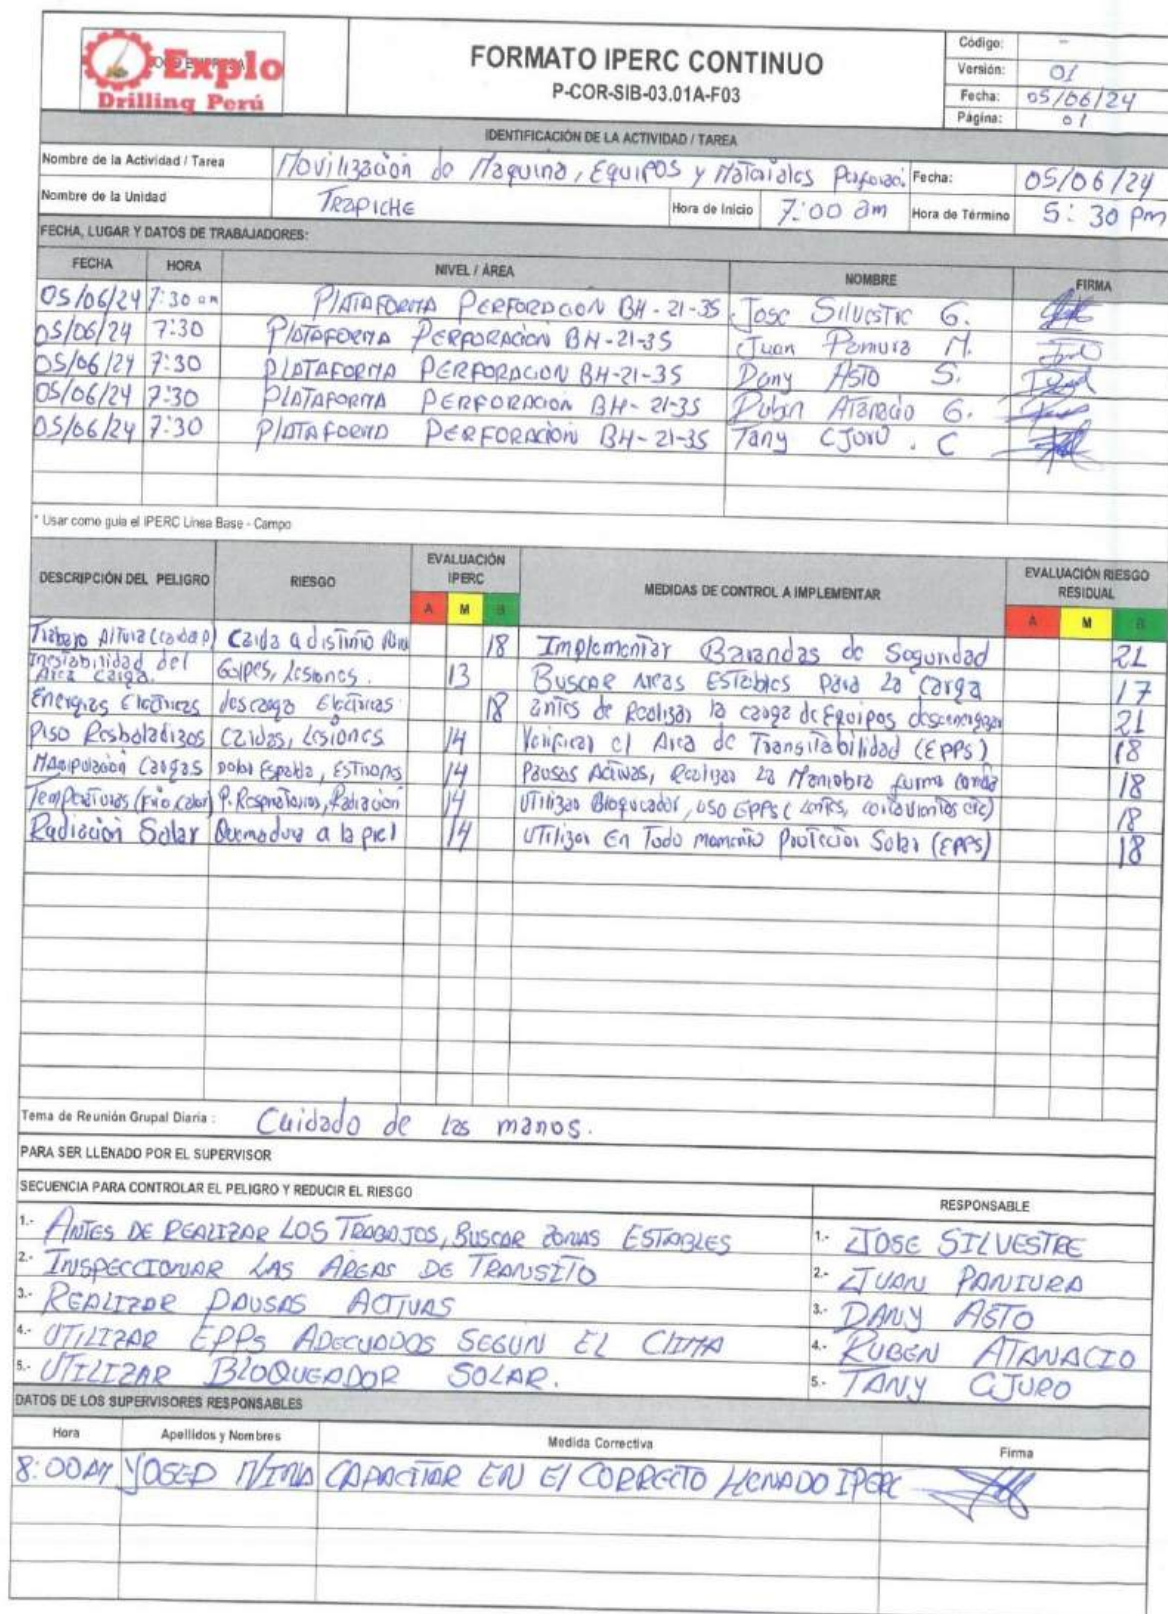 Explo
Drilling Perú
FORMATO IPERC CONTINUO
P-COR-SIB-03.01A-F03
Código: -
Versión: 01
Fecha: 05/06/24
Página: 01
IDENTIFICACIÓN DE LA ACTIVIDAD / TAREA
Nombre de la Actividad / Tarea Movilización de Maquina, Equipos y Materiales Fecha: 05/06/24
Nombre de la Unidad TRAPICHE Hora de Inicio 7:00 am Hora de Término 5:30 pm
FECHA, LUGAR Y DATOS DE TRABAJADORES:
FECHA HORA NIVEL / ÁREA NOMBRE FIRMA
05/06/24 7:30 am PLATAFORMA PERFORACION BH-21-35 Jose Silvestre G.
05/06/24 7:30 PLATAFORMA PERFORACION BH-21-35 Juan Paniura M.
05/06/24 7:30 PLATAFORMA PERFORACION BH-21-35 Dany Asto S.
05/06/24 7:30 PLATAFORMA PERFORACION BH-21-35 Rubén Atanacio G.
05/06/24 7:30 PLATAFORMA PERFORACION BH-21-35 Tany CJuro . C
* Usar como guía el IPERC Línea Base - Campo
DESCRIPCIÓN DEL PELIGRO RIESGO EVALUACIÓN IPERC MEDIDAS DE CONTROL A IMPLEMENTAR EVALUACIÓN RIESGO RESIDUAL
A M B A M B
Trabajo Altura Caida a distinto 18 Implementar Barandas de Seguridad 21
Inestabilidad del Area carga. Golpes, Lesiones. 13 Buscar Areas Estables Para La Carga 17
Energias Electricas descarga Electricas 18 antes de Realizar la carga de Equipos desenergizar 21
Piso Resbaladizos Caidas, Lesiones 14 Verificar el Area de Transitabilidad (EPPs) 18
Manipulación Cargas Dolor Espalda, 14 Pausas Activas, Realizar La Maniobra forma 18
Temperaturas (Frio, Calor) P. Respiratorios, Radiación 14 Utilizar Bloqueador, uso EPPs (Lentes, cortavientos etc) 18
Radiación Solar Quemadura a la piel 14 Utilizar En Todo momento Protección Solar (EPPs) 18
Tema de Reunión Grupal Diaria : Cuidado de las manos.
PARA SER LLENADO POR EL SUPERVISOR
SECUENCIA PARA CONTROLAR EL PELIGRO Y REDUCIR EL RIESGO RESPONSABLE
1.- ANTES DE REALIZAR LOS TRABAJOS, BUSCAR ZONAS ESTABLES 1.- JOSE SILVESTRE
2.- INSPECCIONAR LAS AREAS DE TRANSITO 2.- JUAN PANIURA
3.- REALIZAR PAUSAS ACTIVAS 3.- DANY ASTO
4.- UTILIZAR EPPs ADECUADOS SEGUN EL CLIMA 4.- RUBEN ATANACIO
5.- UTILIZAR BLOQUEADOR SOLAR. 5.- TANY CJURO
DATOS DE LOS SUPERVISORES RESPONSABLES
Hora Apellidos y Nombres Medida Correctiva Firma
8:00 AM YOSEP NINA CAPACITAR EN El CORRECTO LLENADO IPERC